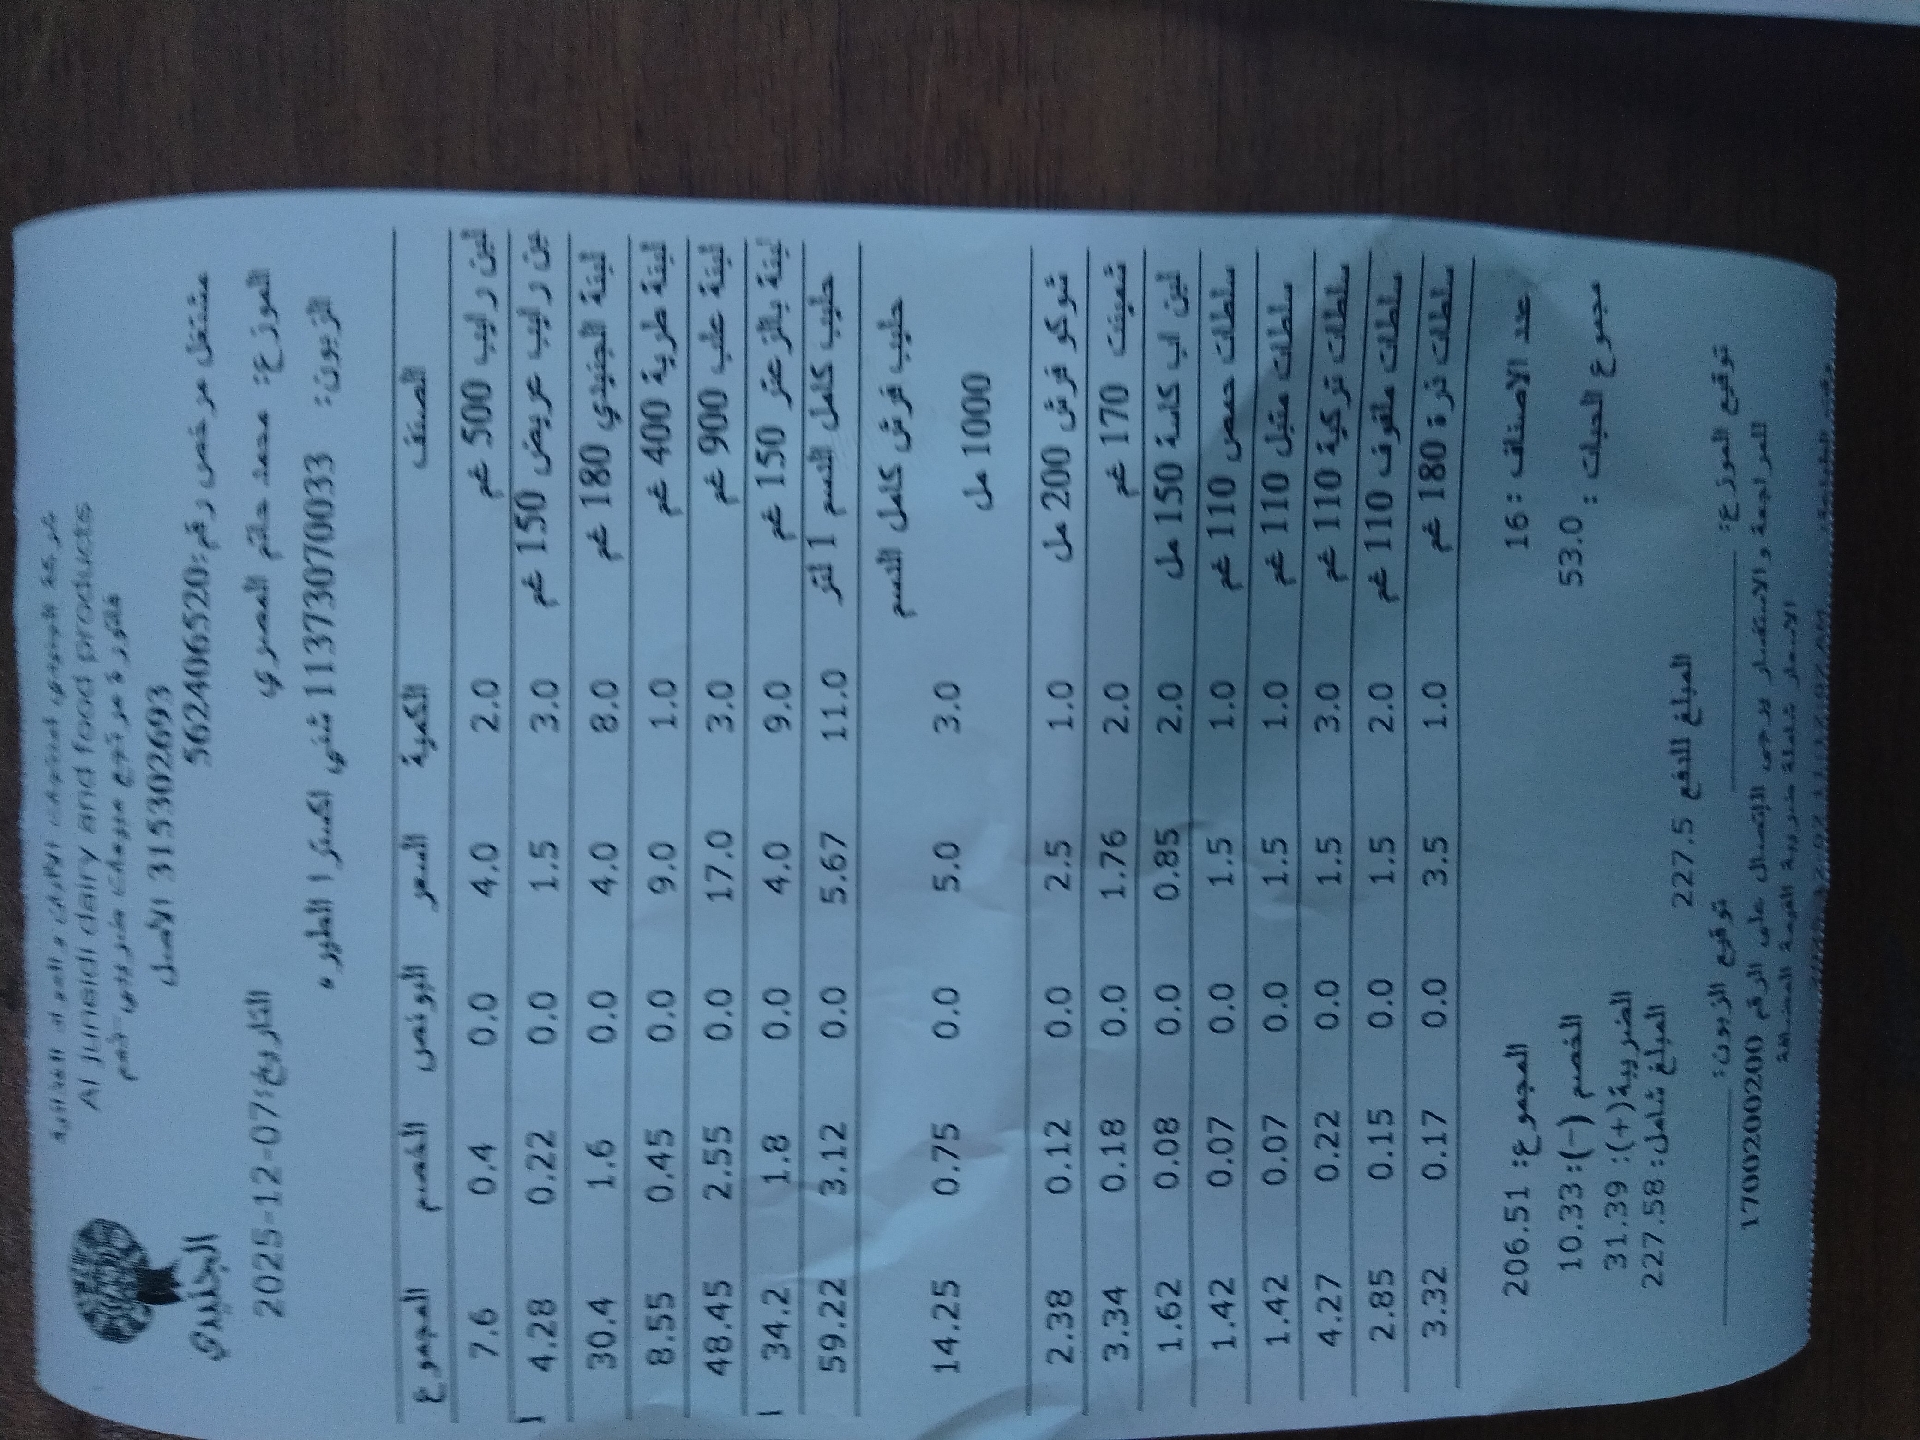 الجنيدي
شركة الجنيدي لمنتوجات الالبان و المواد الغذائية
Al Juneidi dairy and food products
فاتورة مرتجع مبيعات ضريبي خصم
315302693 الاصل
مشتغل مرخص رقم:562406520
الموزع: محمد حاتم المصري التاريخ:2025-12-07
الزبون: 11373070033 شني اكسترا الطيره
الصنف الكمية السعر البونص الخصم المجموع
لبن رايب 500 غم 2.0 4.0 0.0 0.4 7.6
بن رايب عريض 150 غم 3.0 1.5 0.0 0.22 4.28
لبنة الجنيدي 180 غم 8.0 4.0 0.0 1.6 30.4
لبنة طرية 400 غم 1.0 9.0 0.0 0.45 8.55
لبنة علب 900 غم 3.0 17.0 0.0 2.55 48.45
لبنة بالزعتر 150 غم 9.0 4.0 0.0 1.8 34.2
حليب كامل الدسم 1 لتر 11.0 5.67 0.0 3.12 59.22
حليب فرش كامل الدسم
1000 مل 3.0 5.0 0.0 0.75 14.25
شوكو فرش 200 مل 1.0 2.5 0.0 0.12 2.38
شمينت 170 غم 2.0 1.76 0.0 0.18 3.34
لبن اب كاسة 150 مل 2.0 0.85 0.0 0.08 1.62
سلطات حمص 110 غم 1.0 1.5 0.0 0.07 1.42
سلطات متبل 110 غم 1.0 1.5 0.0 0.07 1.42
سلطات تركية 110 غم 3.0 1.5 0.0 0.22 4.27
سلطات ملفوف 110 غم 2.0 1.5 0.0 0.15 2.85
سلطات ذرة 180 غم 1.0 3.5 0.0 0.17 3.32
عدد الاصناف : 16 المجموع: 206.51
مجموع الحبات : 53.0 الخصم (-): 10.33
الضريبة(+): 31.39
المبلغ شامل: 227.58
المبلغ للدفع 227.5
توقيع الموزع: توقيع الزبون:
للمراجعة و الاستفسار يرجى الإتصال على الرقم 1700200200
الاسعار شاملة ضريبة القيمة المضافة